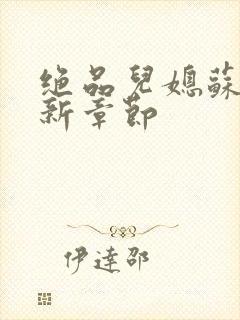 绝品兒媳蘇
新章節
伊達邵